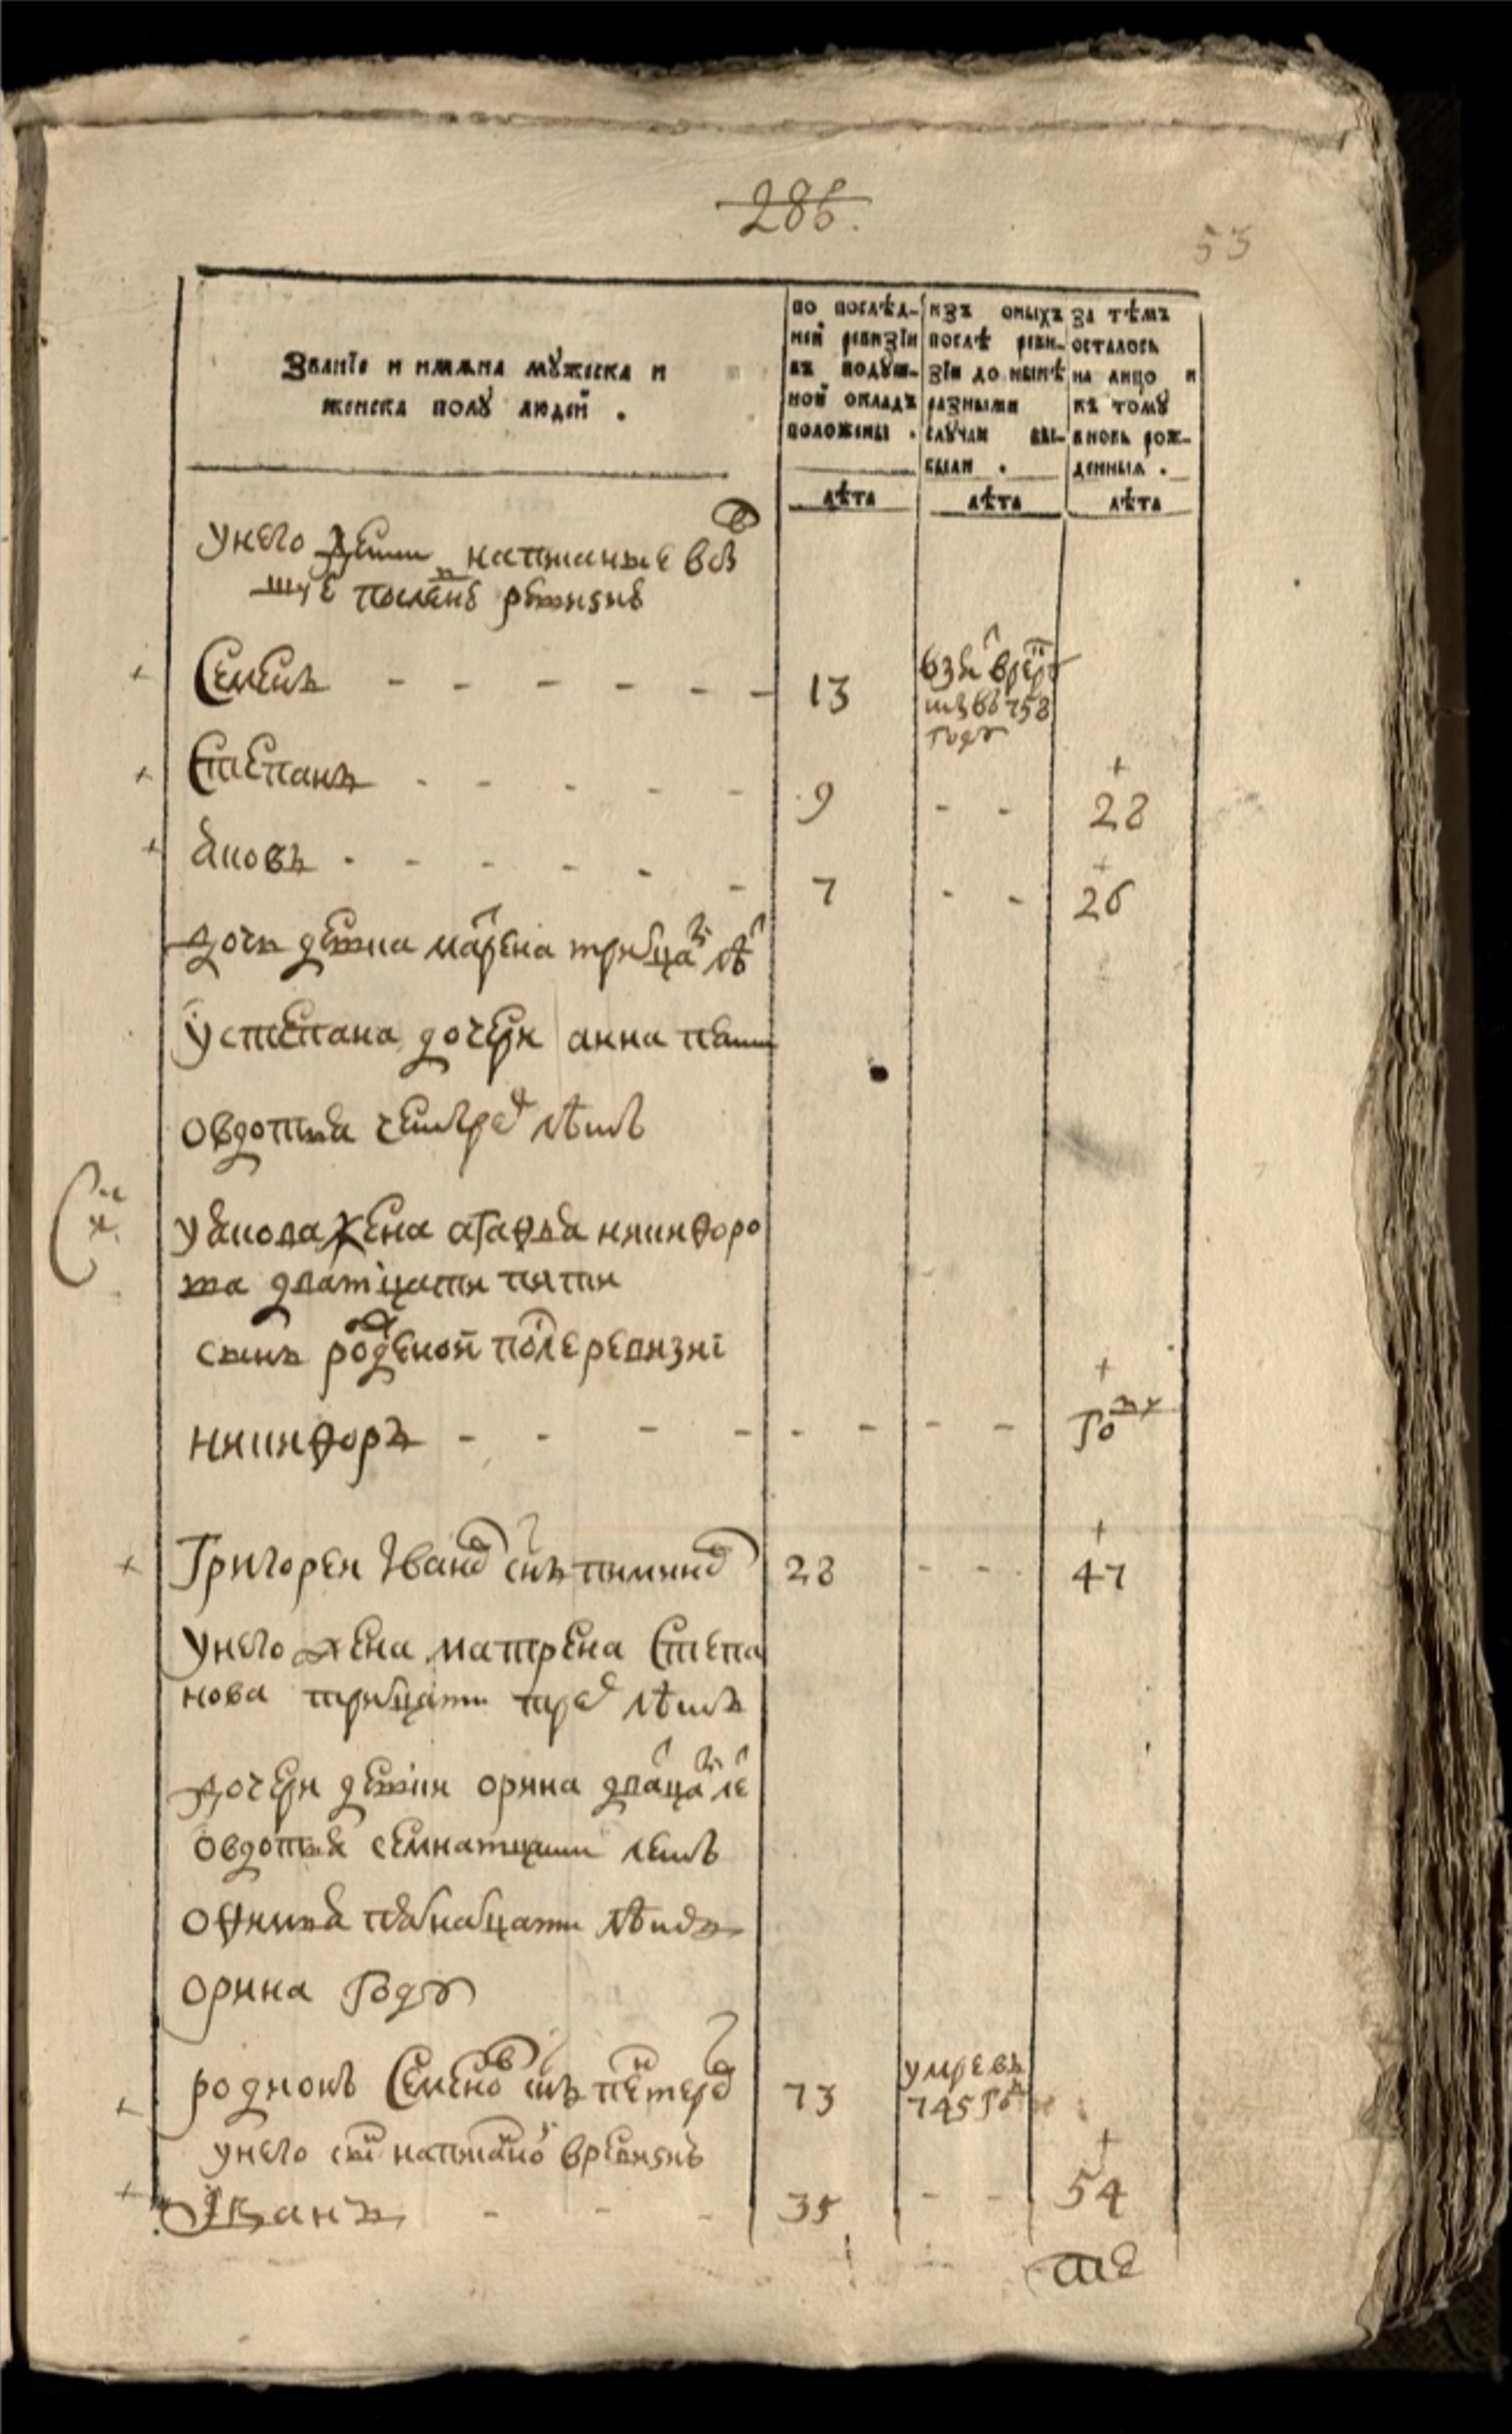 286.
53
Званїе и имѧна мꙋжеска и
женска полꙋ людей .
по послѣд-
ней ревизїи
въ подꙋш-
ной окладъ
положены .
лѣта
изъ оныхъ
послѣ реви-
зїи до нынѣ
разными
слꙋчаи вы-
были .
лѣта
за тѣмъ
осталось
на лицо и
къ томꙋ
вновь рож-
денныя .
лѣта
унего дети написаные
Семенъ - - - - - - 13
взят в рекр
ты въ 758
году
Степанъ - - - - - 9 - - 28
Яковъ - - - - - - 7 - - 26
дочь девка марена трицат лѣт
устепана дочери анна пети
овдотья четырех лѣтъ
уякова жена агафья никифоро
ва дватцати пяти
сынъ рожденой после ревизиї
никифоръ - - - - - - - - году
Григореи Иванов снъ пиминов 28 - - 47
унего жена матрена Степа
нова тритцати трех лѣтъ
дочери девки орина дватцат ле
овдотья семнатцати летъ
офимья пятнатцати лѣтъ
орина году
родионъ Семенов снъ 73
умре въ
745 год
унего сын написаной вревизиъ
Иванъ - - - 35 - - 54